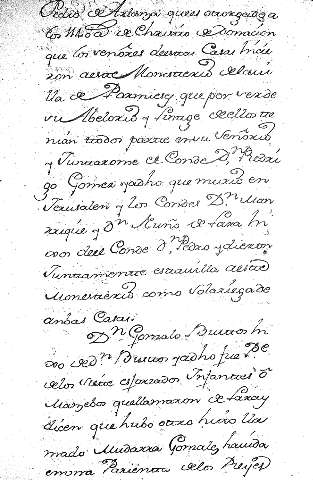 Pedro de Arlanza que es otorgada a
los 1180 de Christo de donacion
que los señores de estas Casas hicie
ron a este Monasterio de la vi
lla de que por verde
su Abolorio y Linage de ellos te
nian todos parte en su Señorio
y Juntarome el Conde Dn Rodri
go Gomez yadho que murio en
Jerusalen y los Condes Dn Man
rique y Dn Nuño de Lara hi
xos de el Conde dn Pedro y dieron
Juntamente esta villa a este
Monesterio como Solariega de
ambas Casas.
Dn Gonzalo Bustos hi
xo de dn Bustos yadho fue Pe
de los siete esforzados Infantes ô
Manzebos que llamaron de Lara y
dicen que hubo otro hixo lla
mado Mudarra Gonzalez havida
en una Parienta de los Reyes